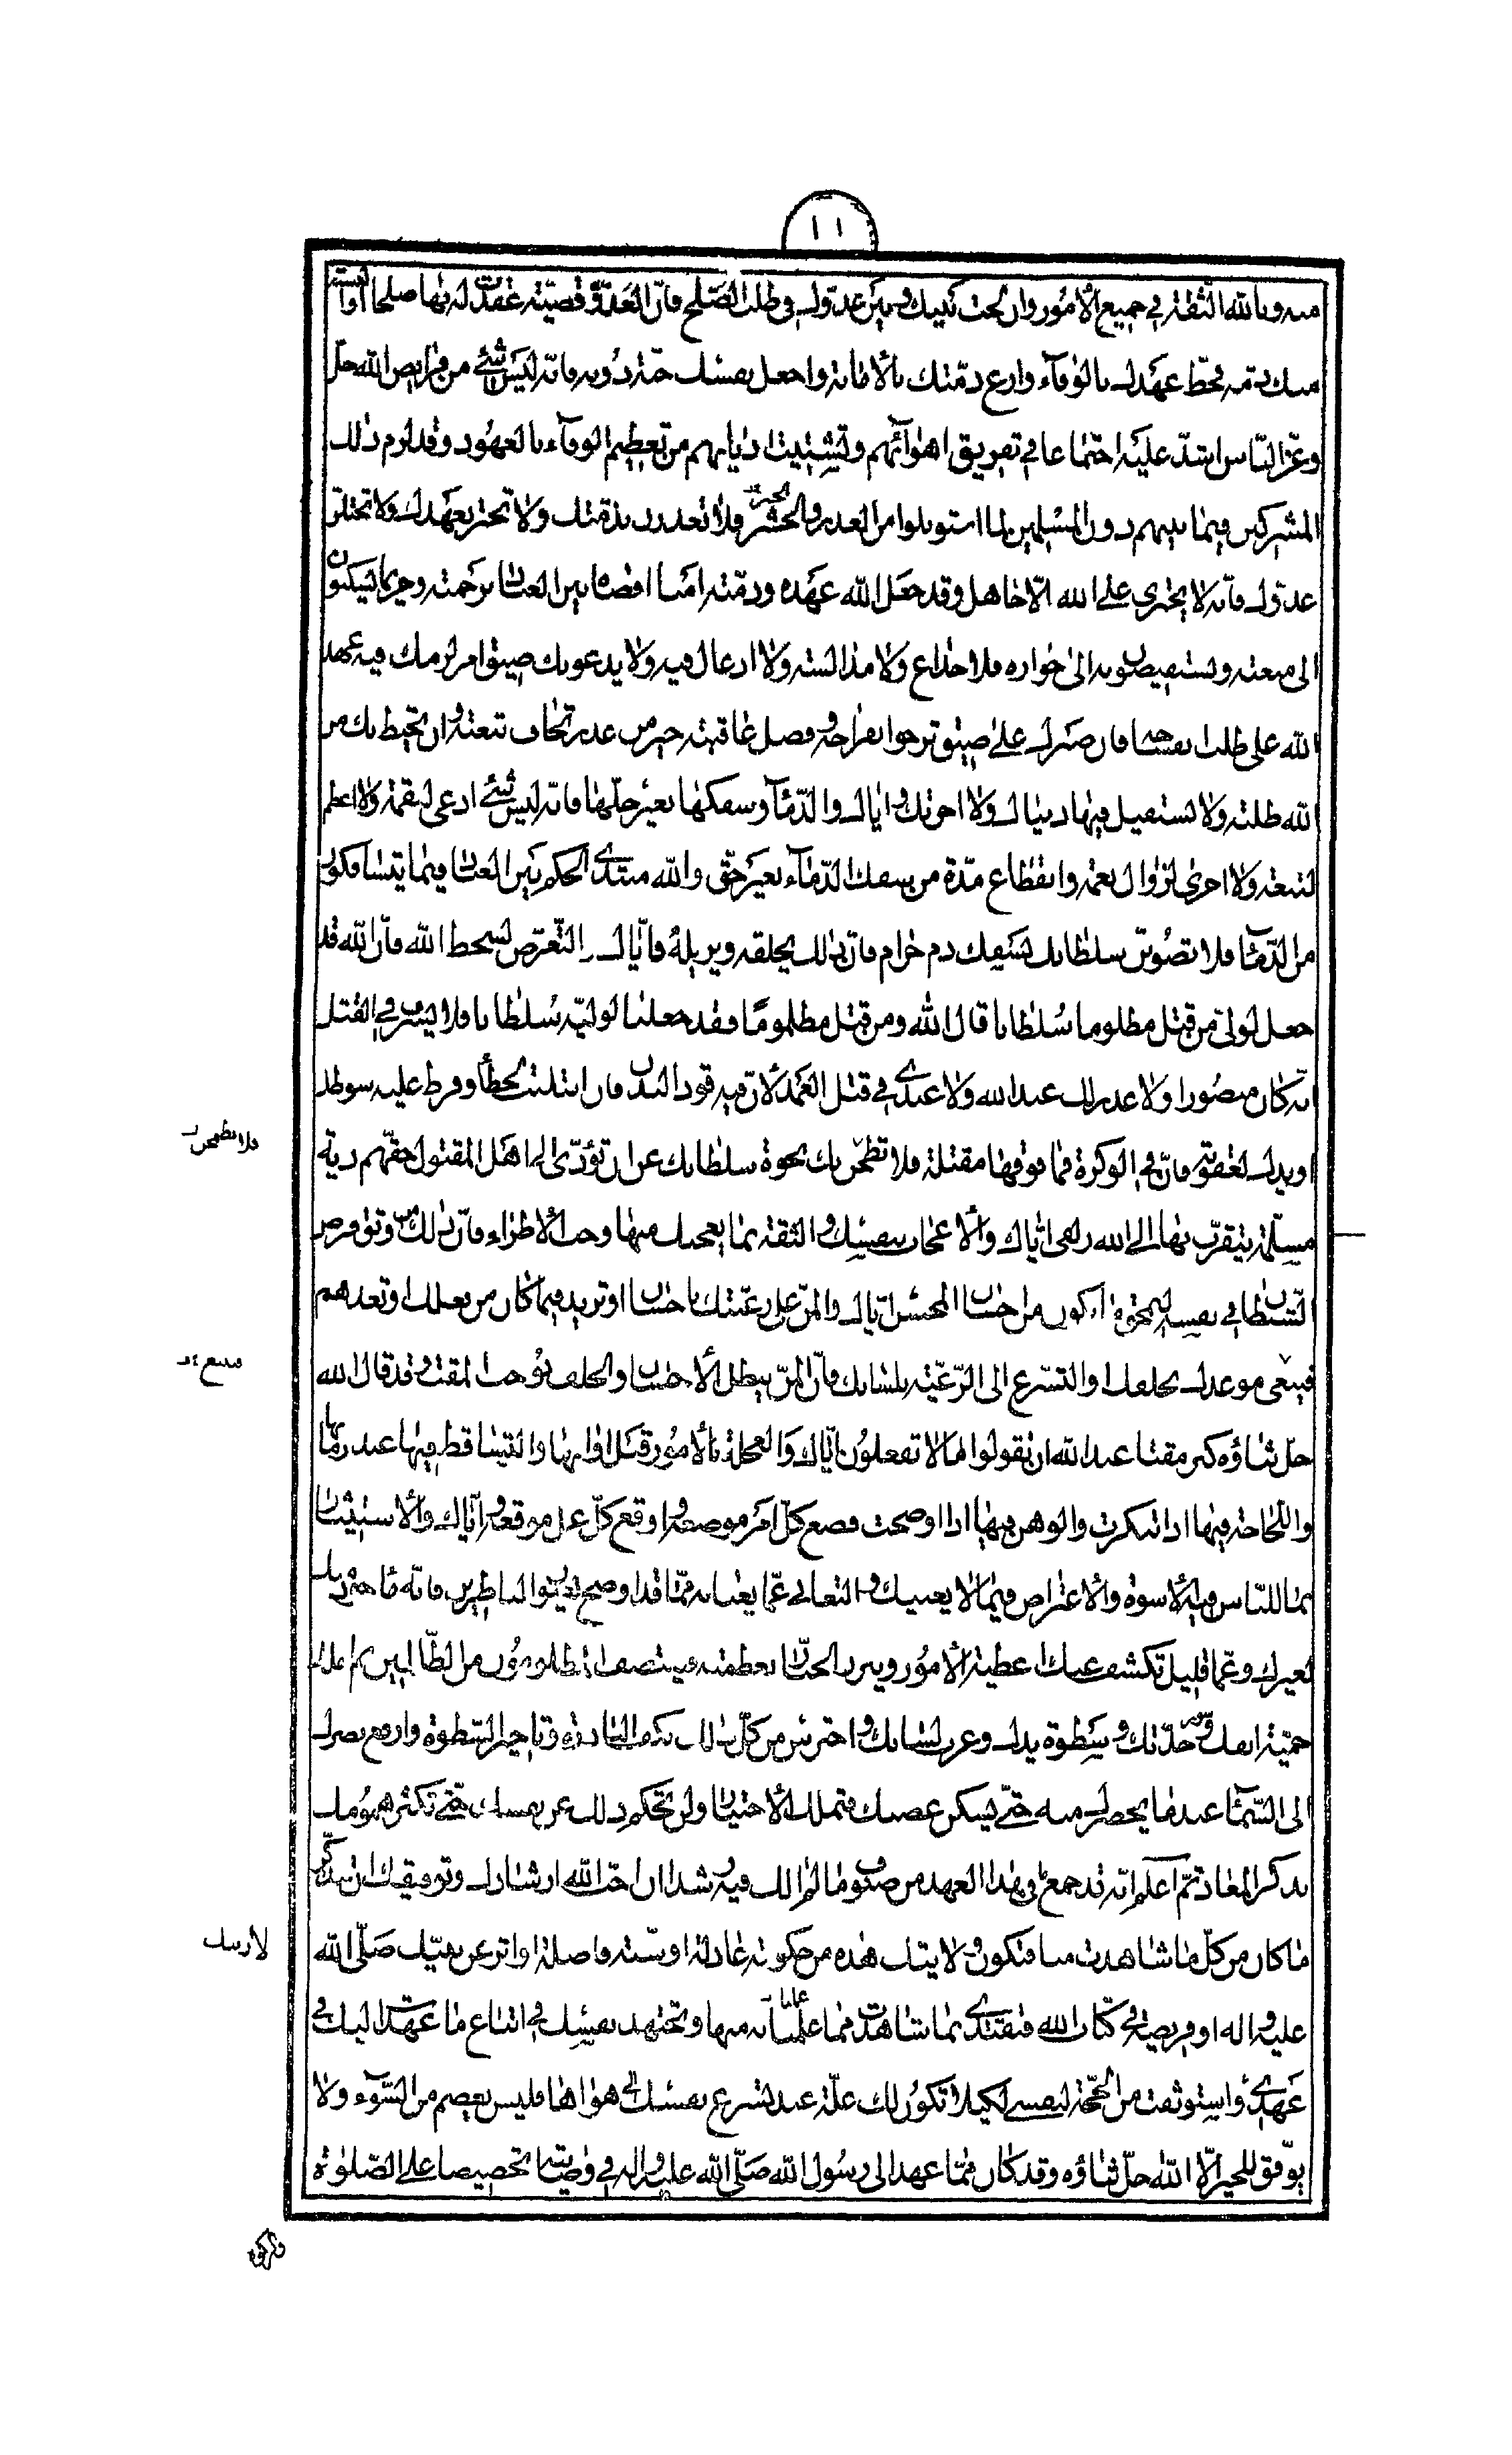 ١١
منه وبالله الثقة في جميع الأمور وان لجت بينك وبين عدوك في طلب الصلح فان العدو قضية عقدت له بها صلحا أو البسته
منك ذمة فحط عهدك بالوفاء وارع ذمتك بالأمانة واجعل نفسك جنة دونه فانه ليس شئ من فرايض الله جل
وعز الناس اشد عليه اجتماعا في تفريق اهوائهم وتشتيت اديانهم من تعظيم الوفاء بالعهود وقد لزم ذلك
المشركين فيما بينهم دون المسلمين لما استوبلوا من الغدر والختر فلا تغدرن بذمتك ولا تختر بعهدك ولا تختلن
عدوك فانه لا يجترى على الله الا جاهل وقد جعل الله عهده وذمته امنا افضاه بين العباد برحمته وحريما يسكنون
الى منعته ويستفيضون به الى جواره فلا خداع ولا مدالسة ولا ادغال فيه ولا يدعونك ضيق امر لزمك فيه عهد
الله على طلب انفساخه فان صبرك على ضيق ترجوا انفراجه وفضل عاقبته خير من غدر تخاف تبعته وان تحيط بك من
الله طلبة ولا تستقيل فيها دنياك ولا اخرتك واياك والدماء وسفكها بغير حلها فانه ليس شئ ادعى لنقمة ولا اعظم
لتبعة ولا احرى لزوال نعمة وانقطاع مدة من سفك الدماء بغير حق والله مبتدئ الحكم بين العباد فيما يتسافكون
من الدماء فلا تصونن سلطانك بسفك دم حرام فان ذلك يخلقه ويزيله فاياك والتعرض لسخط الله فان الله قد
جعل لولي من قتل مظلوما سلطانا قال الله ومن قتل مظلوما فقد جعلنا لوليه سلطانا فلا يسرف في القتل
انه كان منصورا ولا عذر لك عند الله ولا عندي في قتل العمد لان فيه قود البدن فان ابتليت بخطأ وفرط عليه سوطك
او يدك لعقوبة فان في الوكزة فما فوقها مقتلة فلا تطمحن بك نخوة سلطانك عن ان تؤدى الى اهل المقتول حقهم دية
مسلمة يتقرب بها الى الله زلفى اياك والاعجاب بنفسك والثقة بما يعجبك منها وحب الاطراء فان ذلك من اوثق فرص
الشيطان في نفسه ليمحق ما يكون من احسان المحسن اياك والمن على رعيتك باحسان او تزيد فيما كان من فعلك او تعدهم
فيتبع موعدك بخلفك او التسرع الى الرعية بلسانك فان المن يبطل الاحسان والخلف يوجب المقت وقد قال الله
جل ثناؤه كبر مقتا عند الله ان تقولوا ما لا تفعلون اياك والعجلة بالامور قبل اوانها والتساقط فيها عند زمانها
واللجاجة فيها اذا تنكرت والوهن فيها اذا اوضحت فضع كل امر موضعه واوقع كل عمل موقعه واياك والاستيثار
بما للناس فيه الاسوة والاعتراض فيما لا يعنيك والتغابى عما يعنا به مما قد وضح لعيون الناظرين فانه ماخوذ منك
لغيرك وعما قليل تكشف عنك اغطية الامور ويبرز الجبار بعظمته فينتصف المظلومون من الظالمين ثم املك
حمية انفك وسورة حدتك وسطوة يدك وغرب لسانك واحترس من كل ذلك بكف البادرة وتاخير السطوة وارفع بصرك
الى السماء عندما يحضرك منه حتى يسكن غضبك فتملك الاختيار ولن تحكم ذلك من نفسك حتى تكثر همومك
بذكر المعاد ثم اعلم انه قد جمع في هذا العهد من صنوف ما لم الك فيه رشدا ان احب الله ارشادك وتوفيقك ان تتذكر
ما كان من كل ما شاهدت منا فتكون ولايتك هذه من حكومة عادلة او سنة فاضلة او اثر عن نبيك صلى الله
عليه واله او فريضة في كتاب الله فتقتدي بما شاهدت مما عملنا به منها وتجتهد نفسك في اتباع ما عهدت اليك في
عهدي واستوثقت من الحجة لنفسي لكيلا تكون لك علة عند تسرع نفسك الى هواها فليس يعصم من السوء ولا
يوفق للخير الا الله جل ثناؤه وقد كان مما عهد الى رسول الله صلى الله عليه واله في وصايته تحضيضا على الصلوة
فلا تطمحن
فتتبع
لايتك